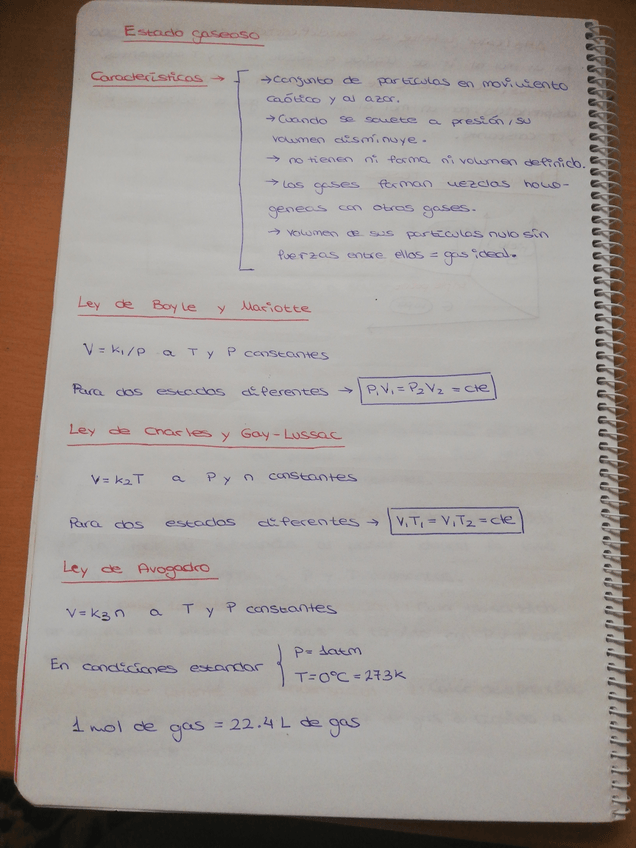 Estado gaseoso
Características → → Conjunto de partículas en movimiento
caótico y al azar.
→ Cuando se somete a presión, su
volumen disminuye.
→ no tienen ni forma ni volumen definido.
→ Los gases forman mezclas homo-
geneas con otros gases.
→ volumen de sus partículas nulo sin
fuerzas entre ellas = gas ideal.
Ley de Boyle y Mariotte
V = k₁/P a T y P constantes
Para dos estados diferentes → P₁V₁ = P₂V₂ = cte
Ley de Charles y Gay-Lussac
V = k₂T a P y n constantes
Para dos estados diferentes → V₁T₁ = V₁T₂ = cte
Ley de Avogadro
V = k₃n a T y P constantes
En condiciones estandar { P = 1atm
T = 0°C = 273k
1 mol de gas = 22.4 L de gas